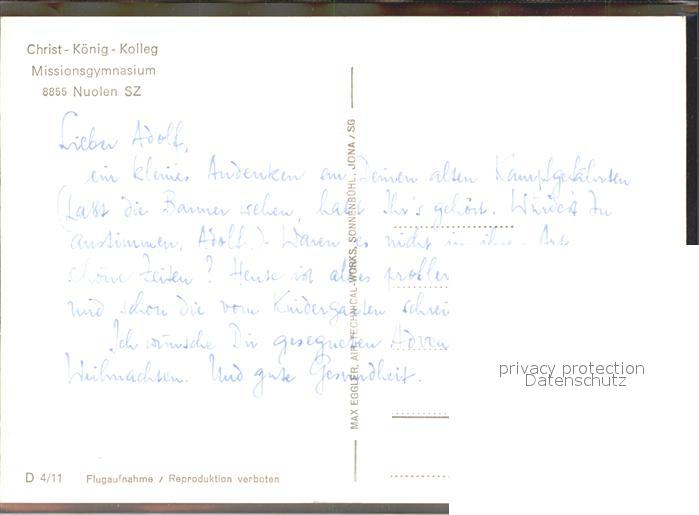 Christ - König - Kolleg
Missionsgymnasium
8855 Nuolen SZ
Lieber Adolf,
ein kleines Andenken an Deinen alten Kampfgefährten
(Lasst die Banner wehen, habt Ihr's gehört. Würdest Du
anstimmen, Adolf.) Waren es nicht in ihrer Art
schöne Zeiten? Heute ist alles
und schon die vom Kindergarten
Ich wünsche Dir gesegneten
Weihnachten. Und gute Gesundheit.
MAX EGGLER, AIR-TECHNICAL-WORKS, SONNENBÜHL, JONA / SG
privacy protection
Datenschutz
D 4/11 Flugaufnahme / Reproduktion verboten